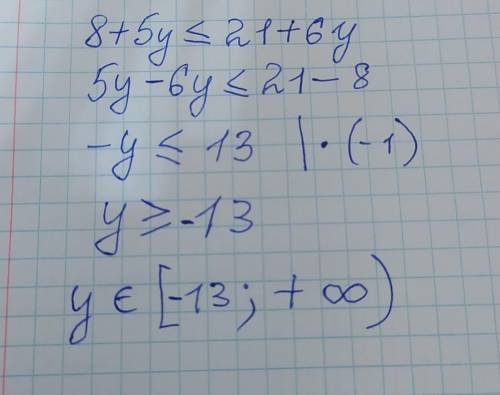 8+5y≤21+6y
5y-6y≤21-8
-y≤13 |·(-1)
y≥-13
y∈[-13;+∞)